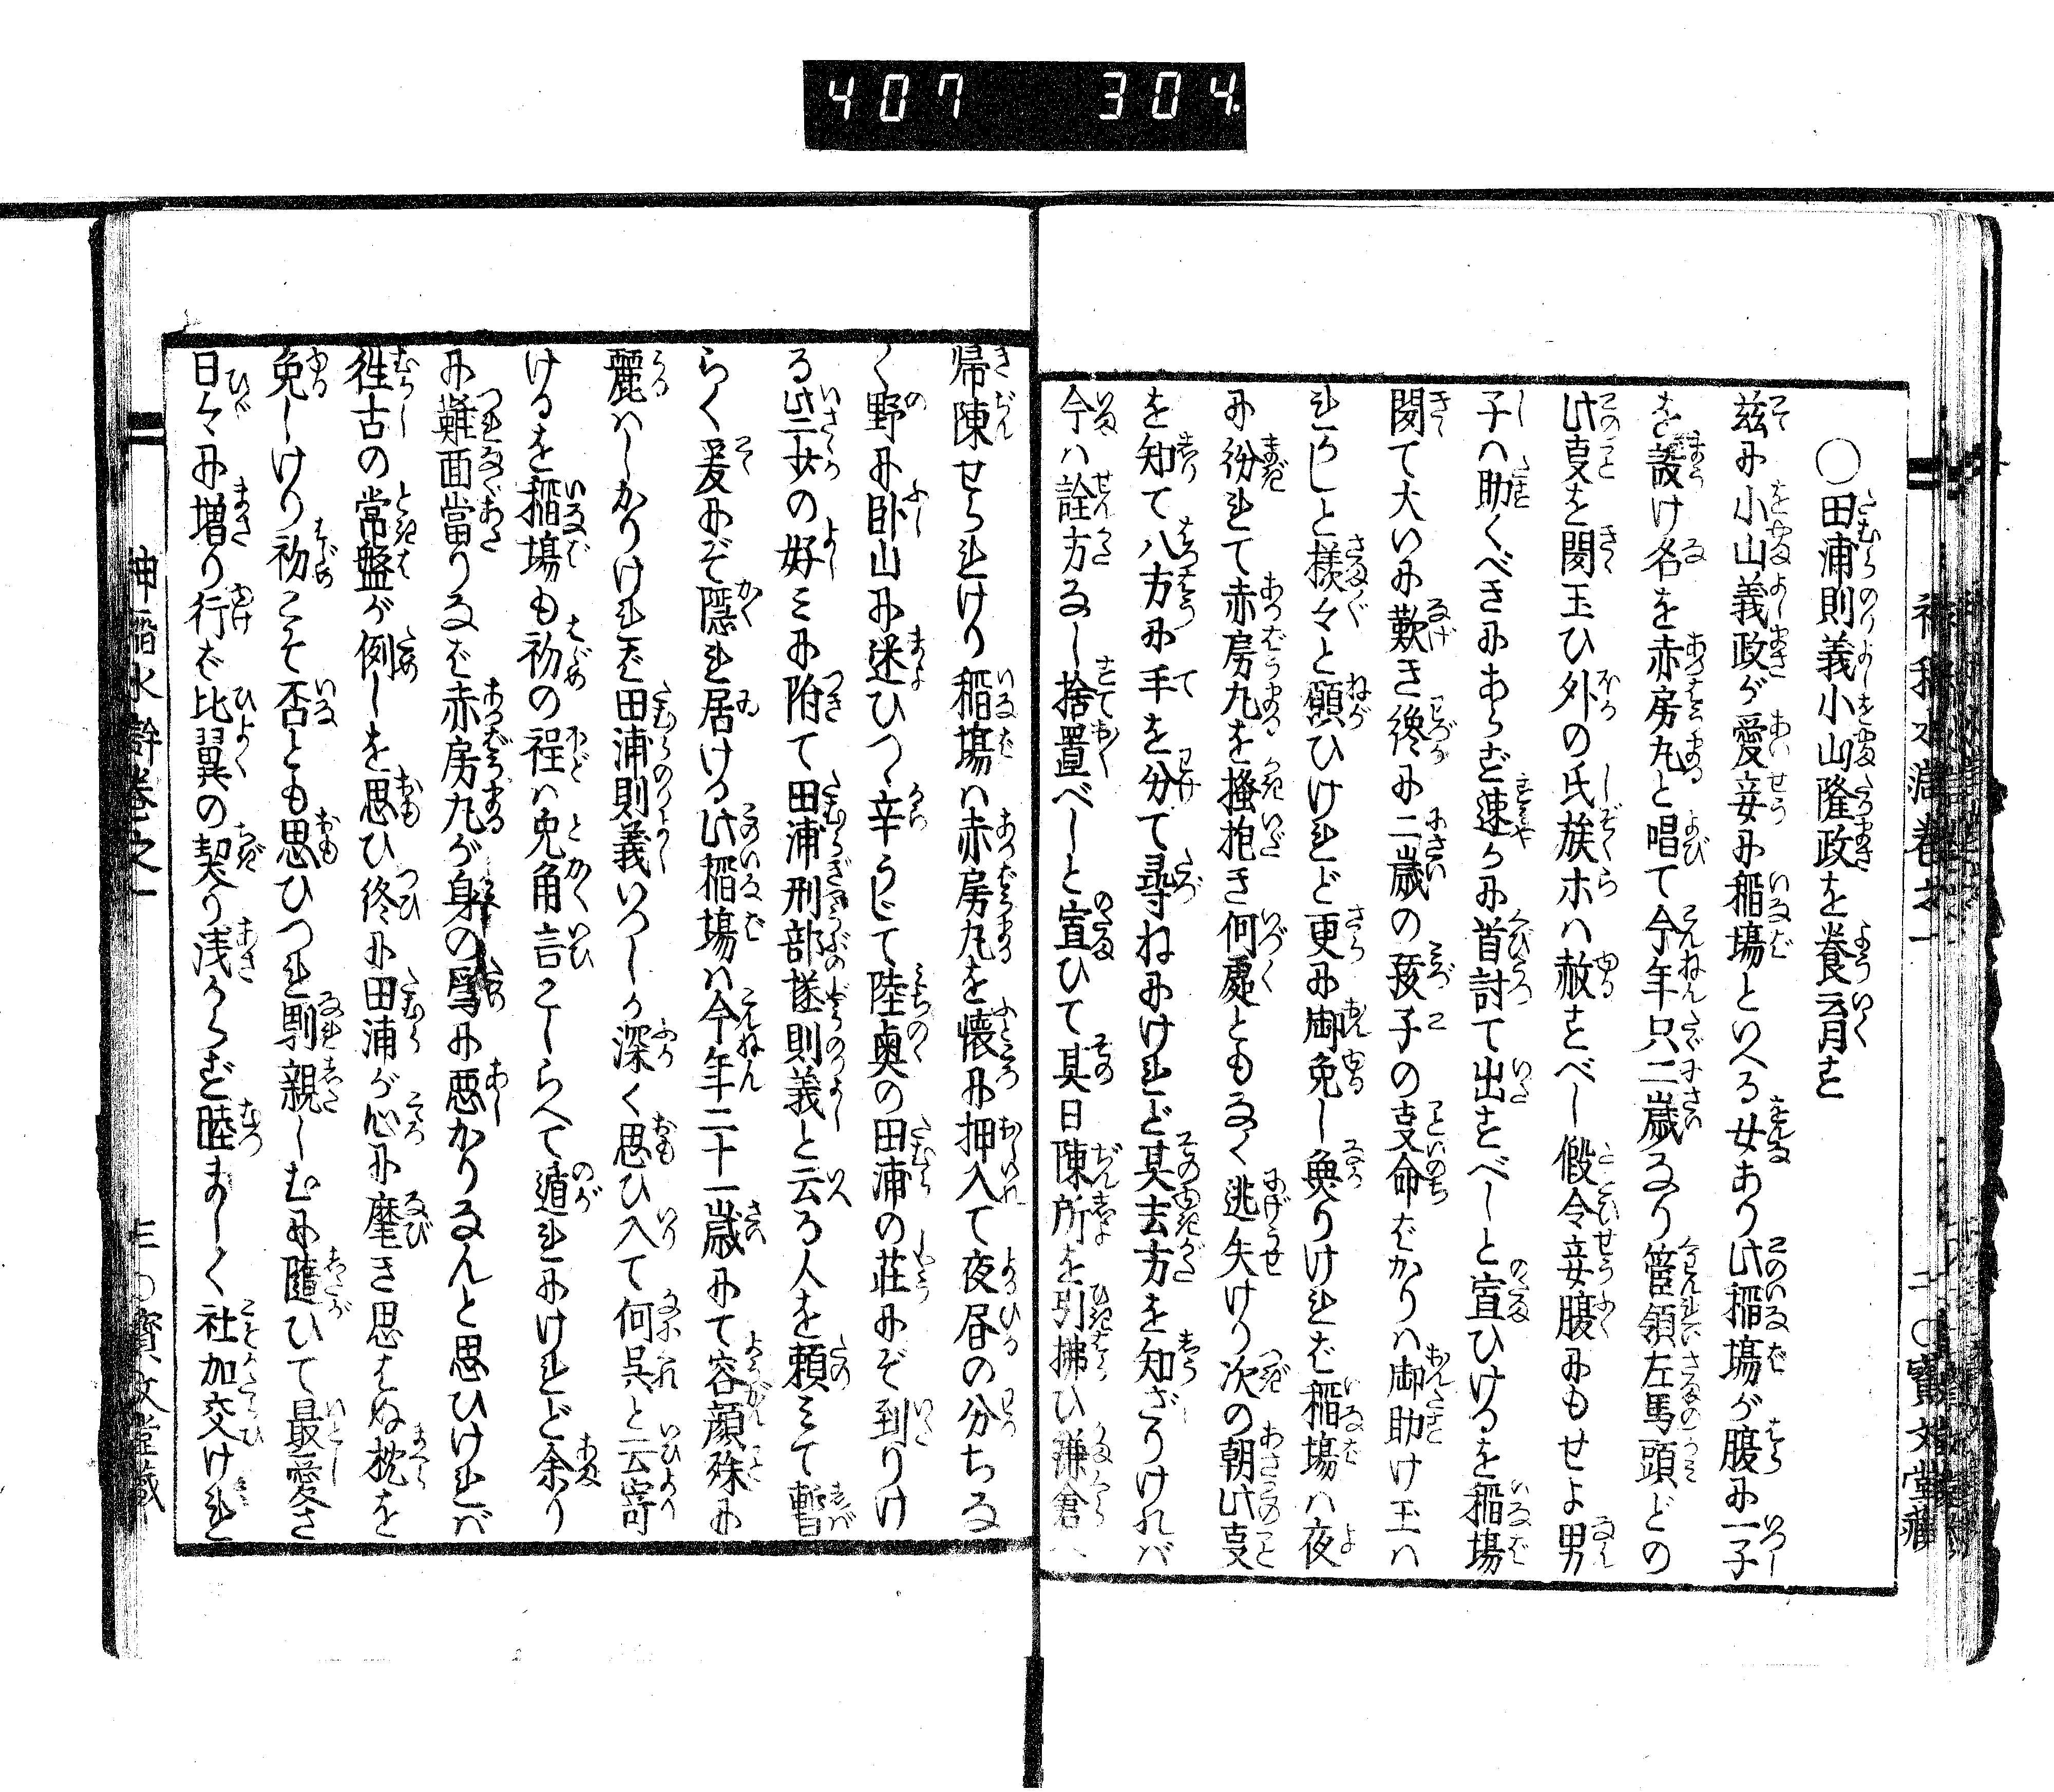 407 304.
〇田浦則義小山隆政を養育す
茲に小山義政が愛妾に稲塲といへる女あり此稲塲が腹に一子
を設け名を赤房丸と唱て今年只二歳なり管領左馬頭どの
此叓を聞玉ひ外の氏族ホハ赦すべし假令妾腹にもせよ男
子ハ助くべきにあらず速かに首討て出すべしと宣ひけるを稲塲
聞て大いに歎き纔に二歳の孩子の叓命ばかりハ御助け玉ハ
れかしと様々と願ひけれど更に御免し無りけれバ稲塲ハ夜
に紛れて赤房丸を掻抱き何處ともなく逃失けり次の朝此叓
を知て八方に手を分て尋ねにけれど其去方を知ざりけれバ
今ハ詮方なし捨置べしと宣ひて其日陳所を引拂ひ鎌倉へ
神稲水滸巻之一
二〇寳文堂藏
帰陳せられけり稲塲ハ赤房丸を懐に押入て夜昼の分ちな
く野に卧山に迷ひつゝ辛うじて陸奥の田浦の荘にぞ到りけ
る此女の好ミに附て田浦刑部𠁅則義と云る人を頼ミて暫
らく爰にぞ隠れ居ける此稲塲ハ今年二十一歳にて容顔殊に
麗ハしかりけれバ田浦則義いつしか深く思ひ入て何呉と云寄
けるを稲塲も初の程ハ免角言こしらへて遁れにけれど余り
に難面當りなバ赤房丸が身の爲に悪かりなんと思ひけれバ
徃古の常盤が例しを思ひ終に田浦が心に靡き思はぬ枕を
免しけり初こそ否とも思ひつれ馴親しむに隨ひて最愛さ
日々に増り行ば比翼の契り浅からず睦ましく社加交けれ
神稲水滸巻之一
三〇寳文堂藏